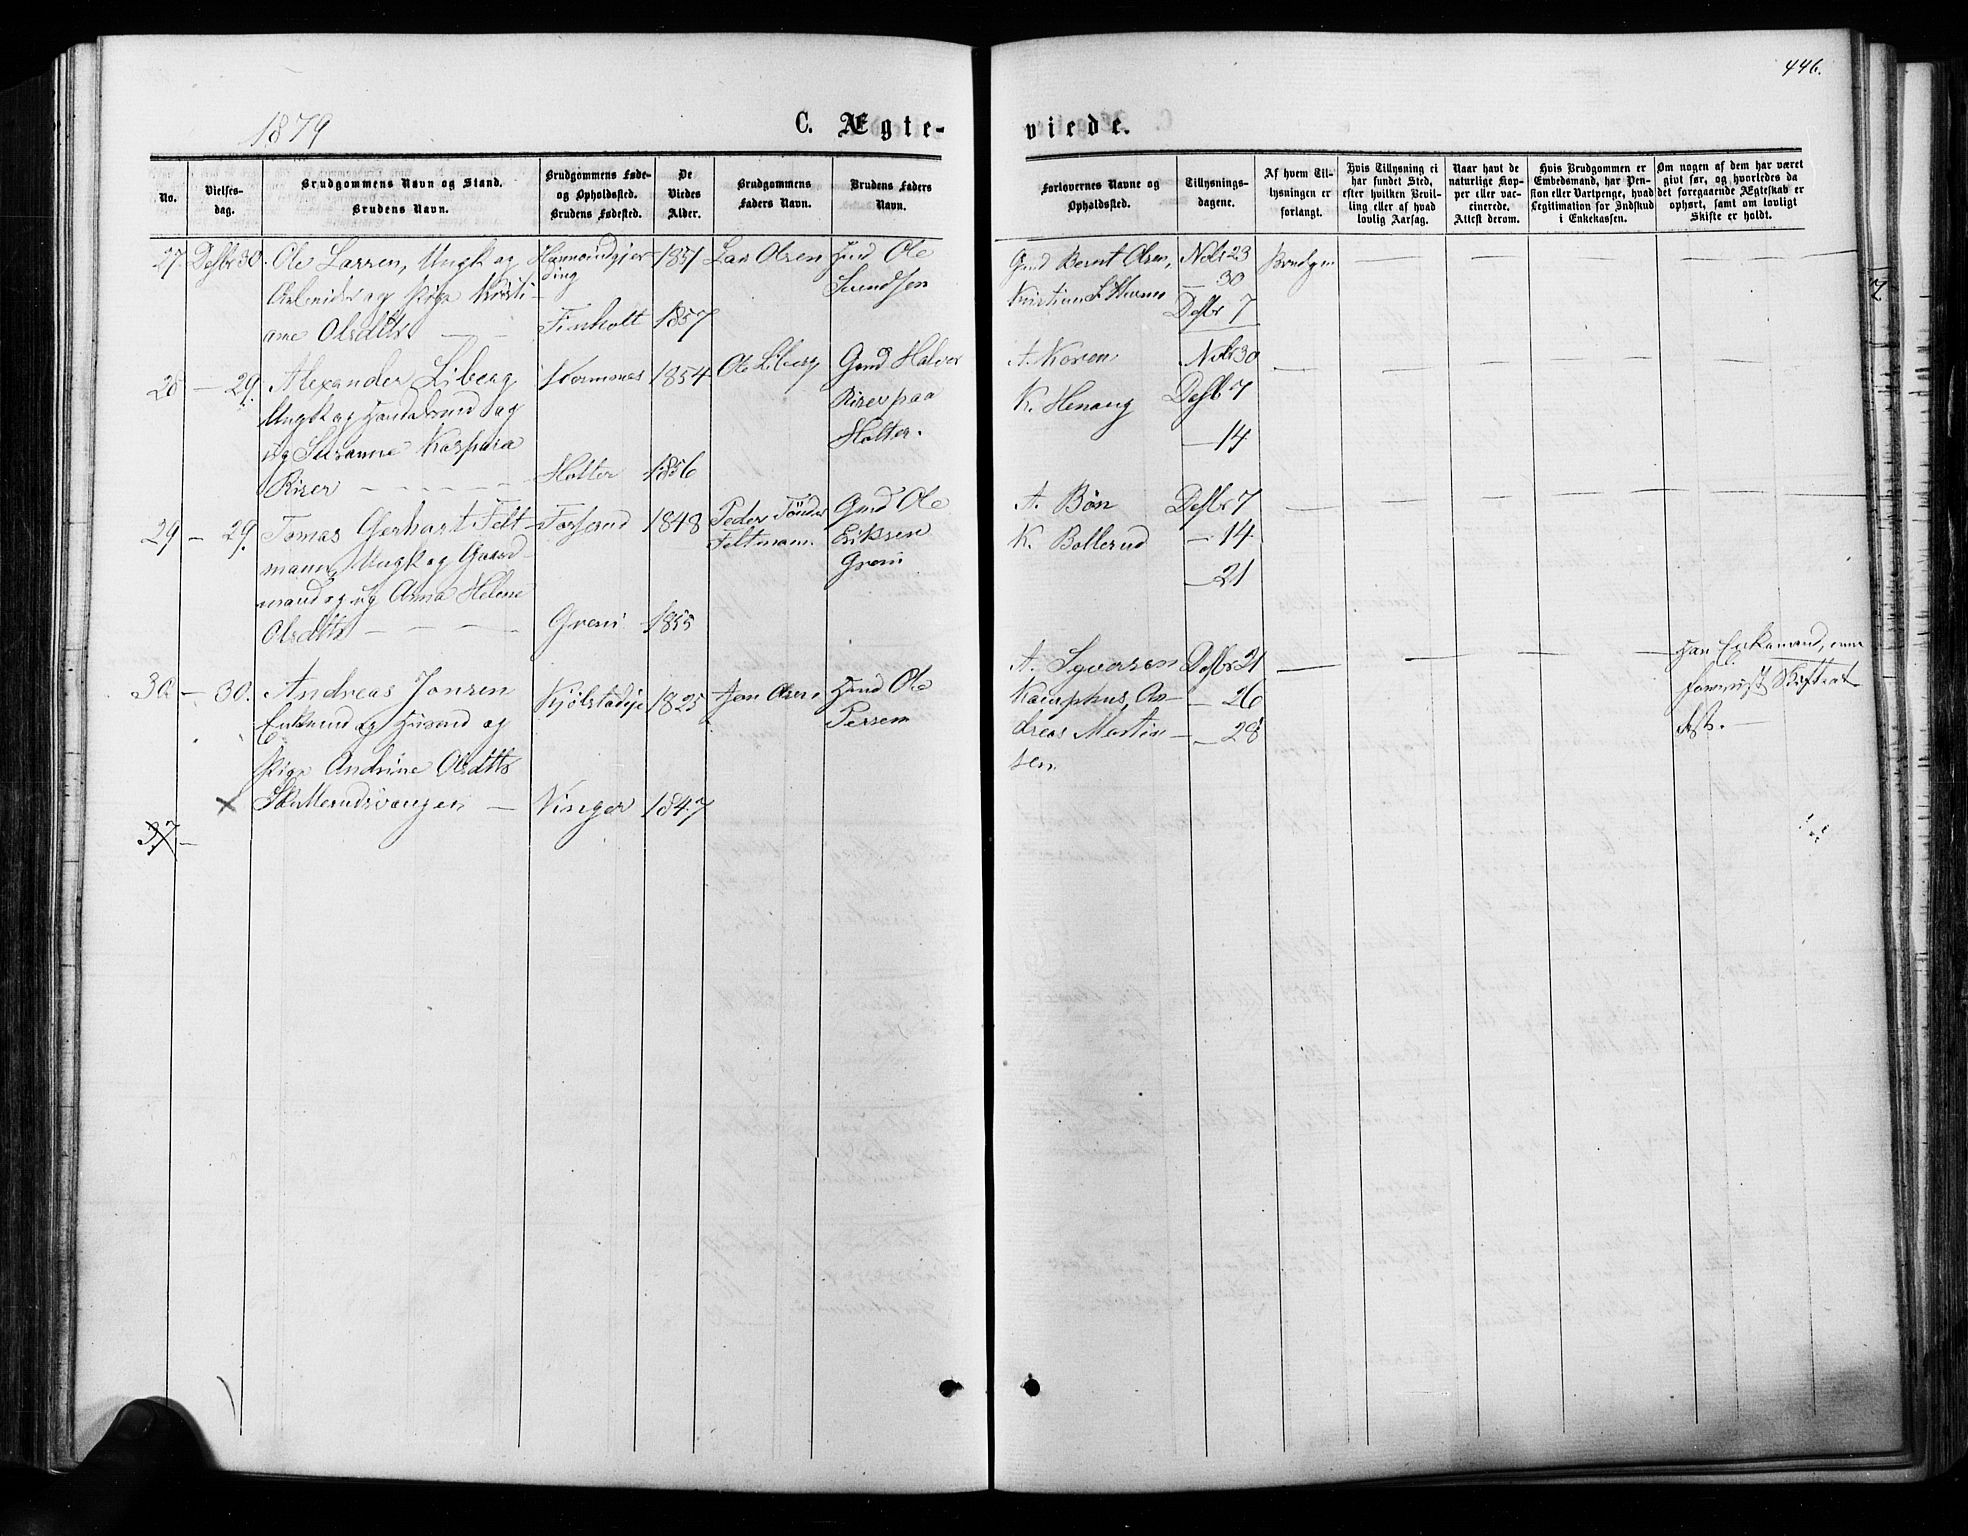 446.
1879
C. Ægte-
viede.
No.
Vielses-
dag.
Brudgommens Navn og Stand.
Brudens Navn.
Brudgommens Føde-
og Opholdssted.
Brudens Fødested.
De
Viedes
Alder.
Brudgommens
Faders Navn.
Brudens Faders
Navn.
Forlovernes Navne og
Opholdssted.
Tillysnings-
dagene.
Af hvem Til-
lysningen er
forlangt.
Hvis Tillysning ei
har fundet Sted,
efter hvilken Bevil-
ling eller af hvad
lovlig Aarsag.
Naar havt de
naturlige Kop-
per eller vac-
cinerede.
Attest derom.
Hvis Brudgommen er
Embedsmand, har Pen-
sion eller Vartpenge, hvad
Legitimation for Indskud
i Enkekassen.
Om nogen af dem har været
givt før, og hvorledes da
det foregaaende Ægteskab er
ophørt, samt om lovligt
Skifte er holdt.
27. Desbr 30.
Ole Larsen, Ungk og
Arbeider og Pige Kristi-
ane Olsdtr
Finholt
1851
1857
Lars Olsen
Ole
Svendsen
Gmd Bernt Olsen,
Novbr 23
30
Desbr 7
28 — 29.
Alexander Liberg
Ungk og Handelsmand og
Susanne Kaspara
Riser
Kormonæs
Holter
1854
1856
Ole Liberg
Gmd Halvor
Riser paa
Holter.
A. Koren
K. Henang
Novbr 30
Desbr 7
— 14
29 — 29.
Tomas Gerhart Felt-
mann, Ungk og Gaard-
mand og Anna Helene
Olsdtr
Forserud
Greni
1848
1855
Peder Tønder
Feltmann
Gmd Ole
Eriksen
Greni
A. Bøn
K. Bollerud
Desbr 7
— 14
— 21
30 — 30.
Andreas Jonsen
Enkemd og Husmd og
Pige Andrine Olsdtr
Skullerudsvangen —
Kjølstadeje
Vinger
1825
1847
Jon Olsen
Ole
Persen
A. Syversen
Kamphus, An-
dreas Martin-
sen
Desbr 21
— 26
— 28
Han Enkemand,
forevist Skifteat-
test. —
37. —